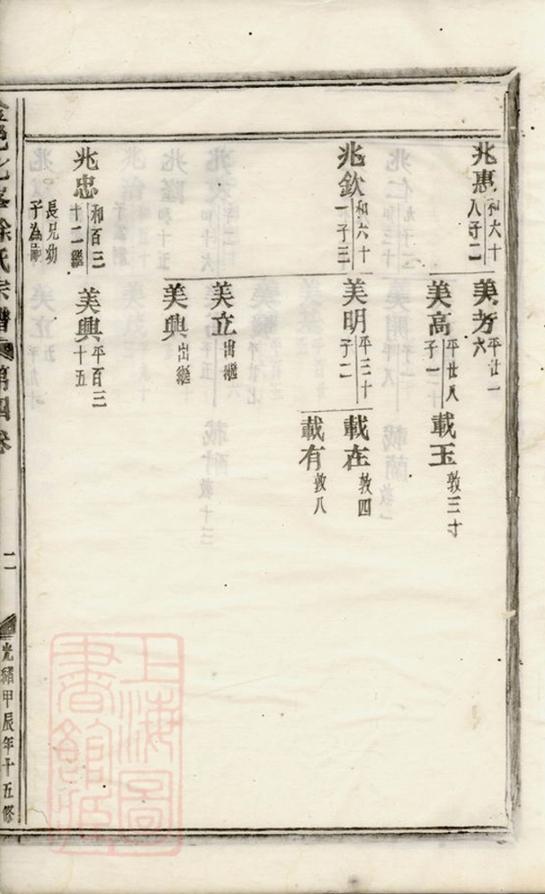 兆惠
和六十
八子二
美芳
平廿一
六
美高
平廿八
子一
載玉
敦三十
兆欽
和六十
一子三
美明
平三十
子二
載在
敦四
載有
敦八
美立
出繼
美興
出繼
兆忠
和百三
十二繼
長兄幼
子為嗣
美興
平百三
十五
徐氏宗譜
第四卷
二
光緒甲辰年十五修
上海圖書館藏